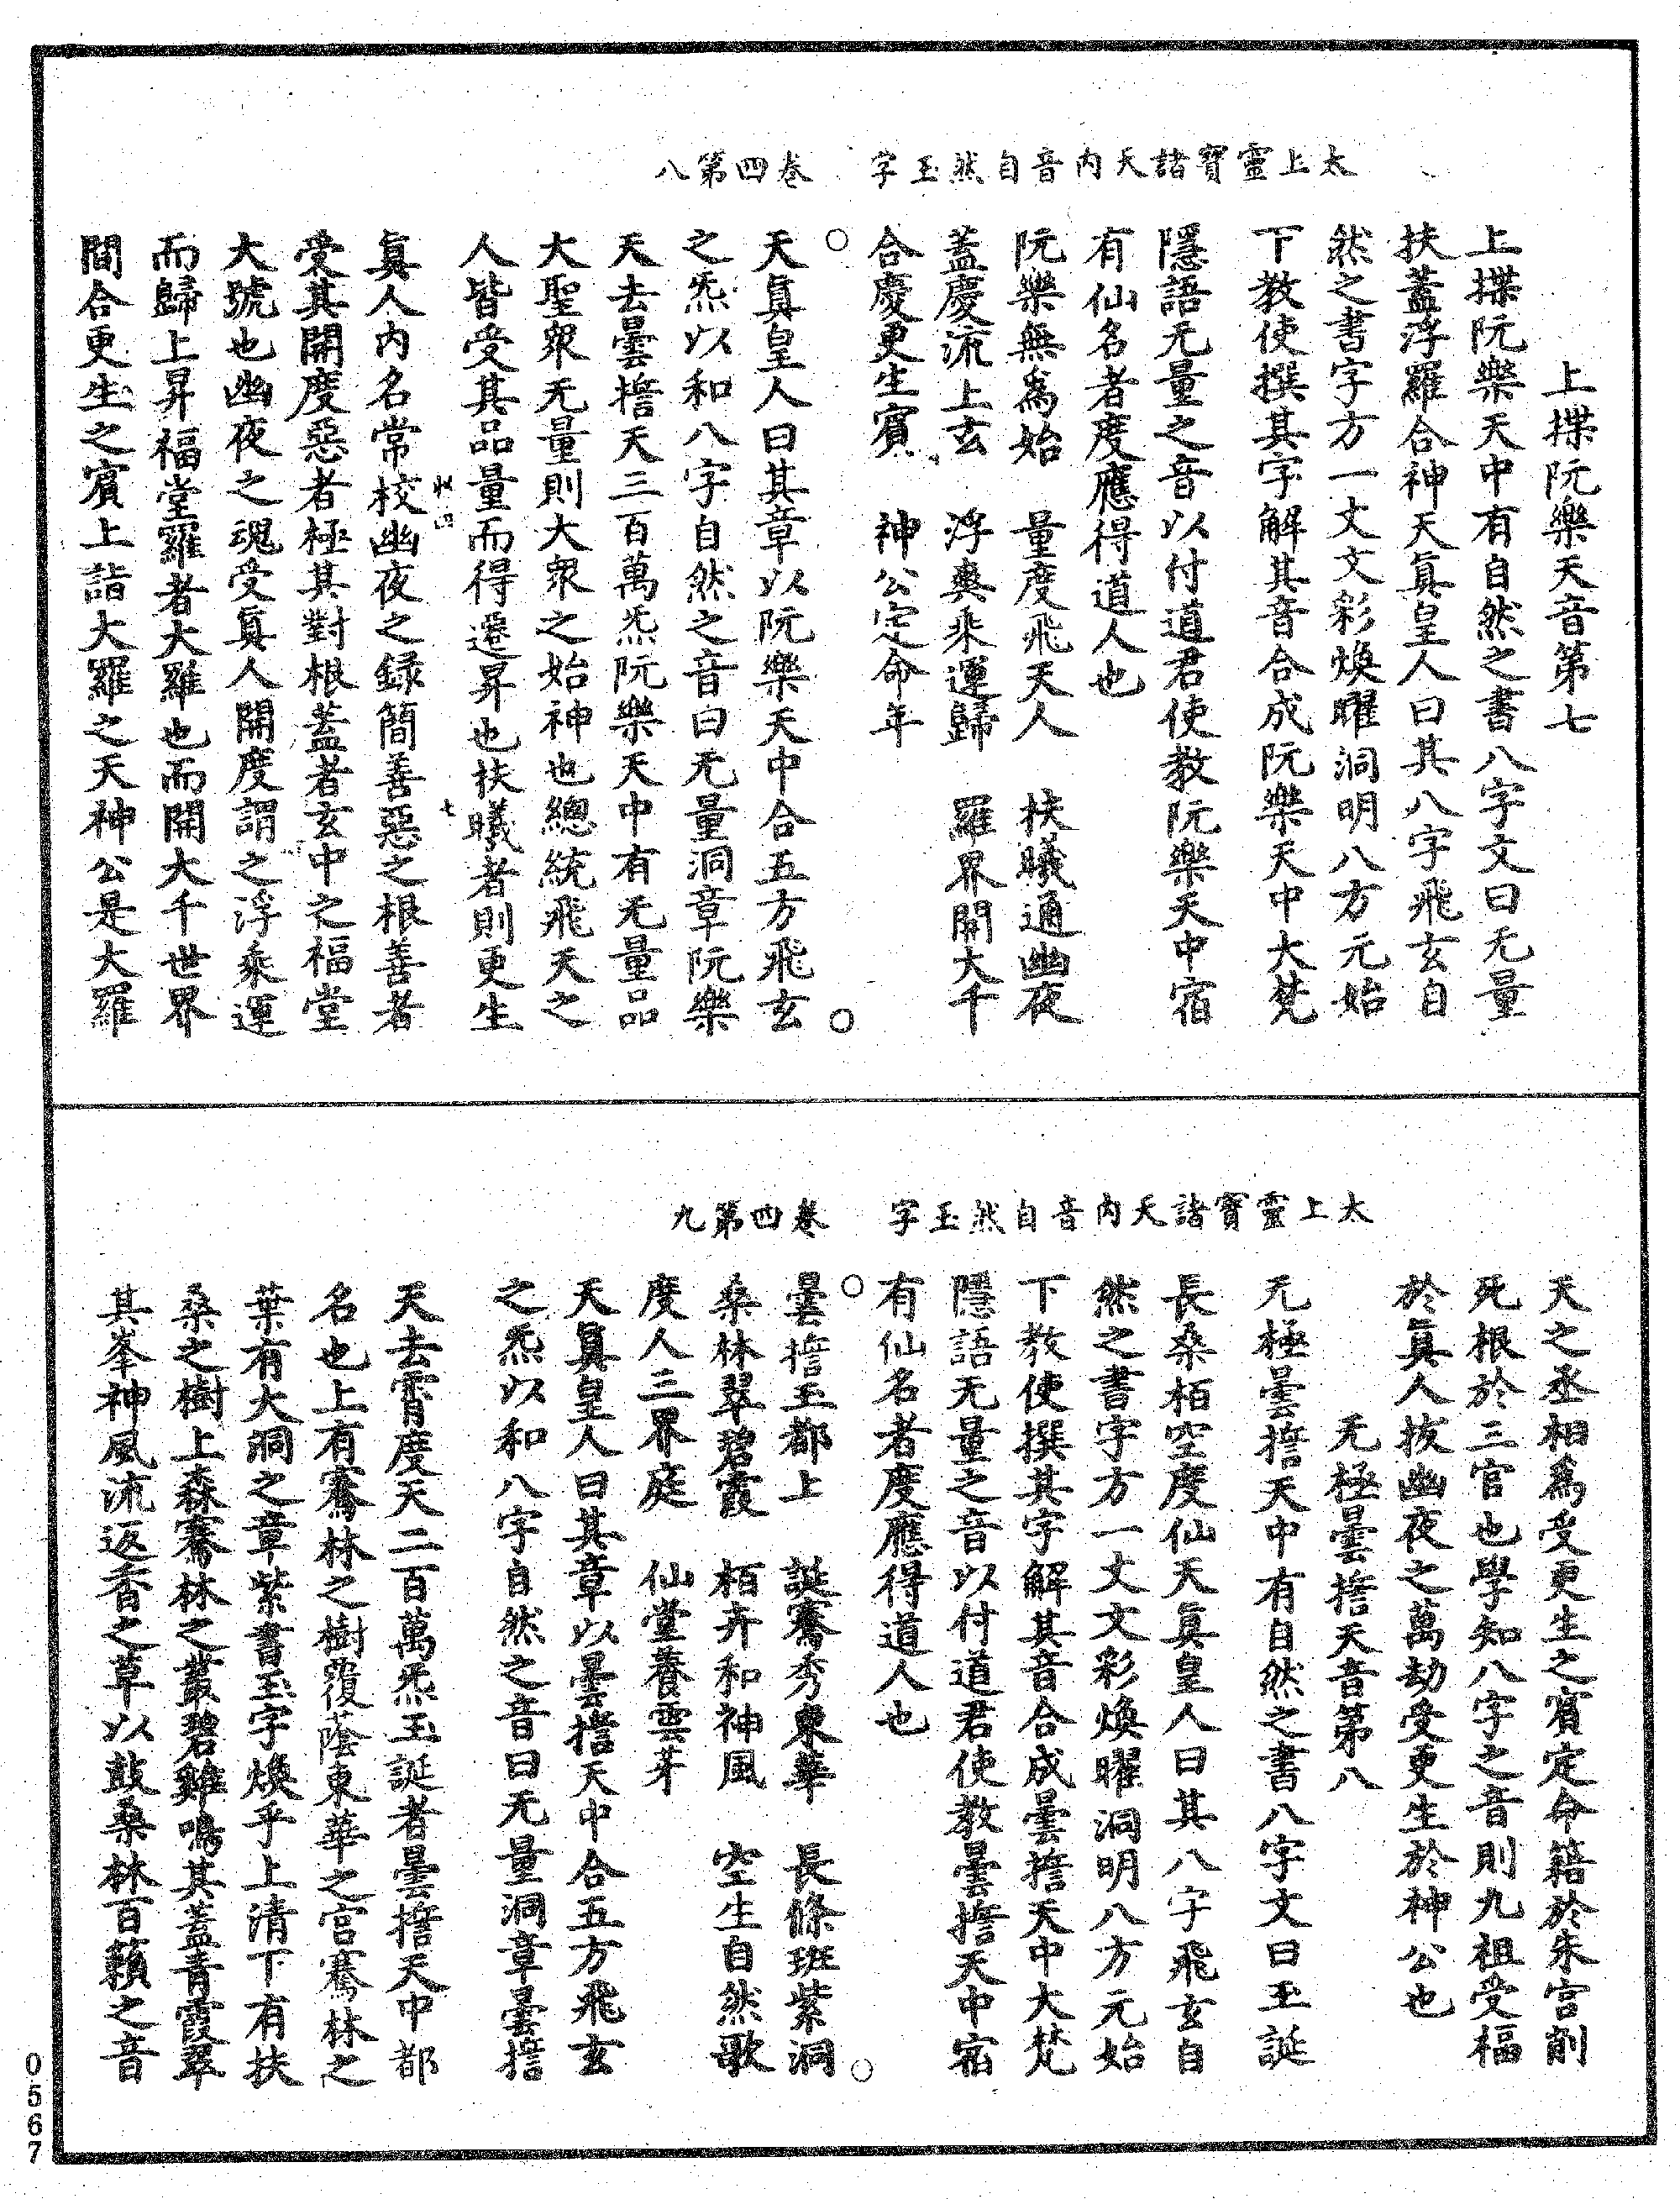 太上靈寶諸天內音自然玉字　卷四第八
上揲阮樂天音第七
上揲阮樂天中有自然之書八字文曰无量
扶蓋浮羅合神天真皇人曰其八字飛玄自
然之書字方一丈文彩煥曜洞明八方元始
下教使撰其字解其音合成阮樂天中大梵
隱語无量之音以付道君使教阮樂天中宿
有仙名者度應得道人也
阮樂無為始　量度飛天人　扶曦通幽夜
蓋慶流上玄　浮爽乘運歸　羅界開大千
合慶更生賓　神公定命年
天真皇人曰其章以阮樂天中合五方飛玄
之炁以和八字自然之音曰无量洞章阮樂
天去曇擔天三百萬炁阮樂天中有无量品
大聖衆无量則大衆之始神也總統飛天之
人皆受其品量而得遷昇也扶曦者則更生
真人內名常校幽夜之録簡善惡之根善者
受其開度惡者極其對根蓋者玄中之福堂
大號也幽夜之魂受真人開度謂之浮乘運
而歸上昇福堂羅者大羅也而開大千世界
間合更生之賓上詣大羅之天神公是大羅
太上靈寶諸天內音自然玉字　卷四第九
天之丞相為受更生之賓定命籍於朱宮削
死根於三官也學知八字之音則九祖受福
於真人拔幽夜之萬劫受更生於神公也
无極曇擔天音第八
无極曇擔天中有自然之書八字文曰玉誕
長桑栢空度仙天真皇人曰其八字飛玄自
然之書字方一丈文彩煥曜洞明八方元始
下教使撰其字解其音合成曇擔天中大梵
隱語无量之音以付道君使教曇擔天中宿
有仙名者度應得道人也
曇擔玉都上　誕騫秀東華　長條班紫洞
桑林翠碧霞　栢卉和神風　空生自然歌
度人三界庭　仙堂養雲芽
天真皇人曰其章以曇擔天中合五方飛玄
之炁以和八字自然之音曰无量洞章曇擔
天去霄度天二百萬炁玉誕者曇擔天中都
名也上有騫林之樹覆蔭東華之宮騫林之
葉有大洞之章紫書玉字煥乎上清下有扶
桑之樹上森騫林之叢碧雞鳴其蓋青霞翠
其峯神風流返香之草以鼓桑林百籟之音
0567